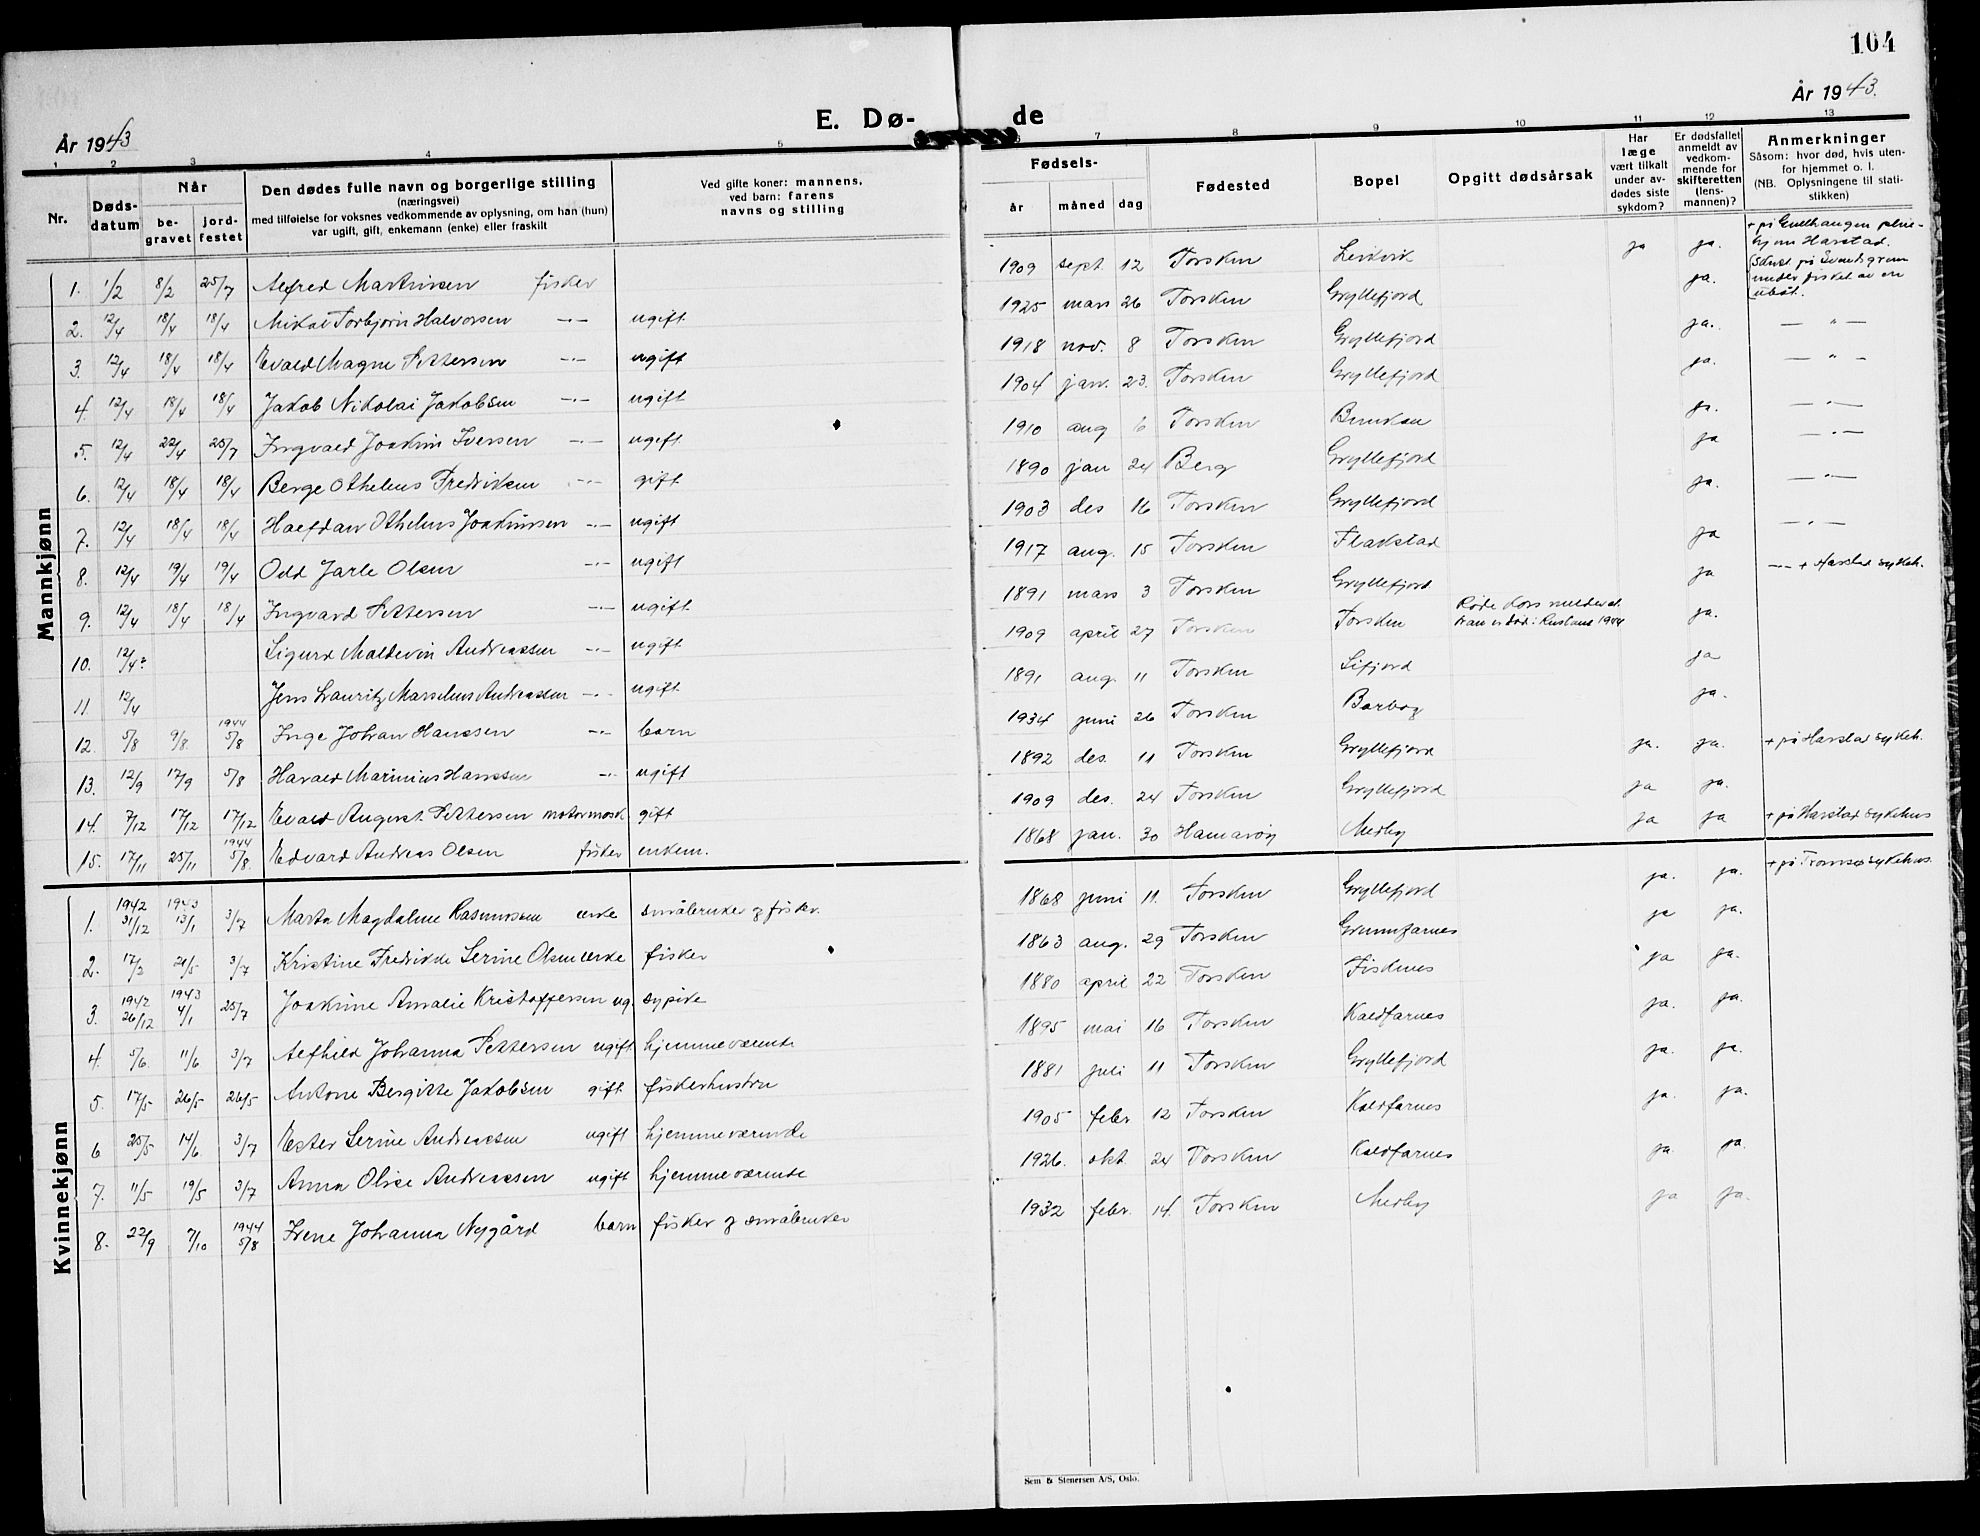 104
År 1943
E. Dø-de
År 1943.
1 2 3 4 5 6 7 8 9 10 11 12 13
Nr.
Dødsdatum
Når
begravet
jordfestet
Den dødes fulle navn og borgerlige stilling
(næringsvei)
med tilføielse for voksnes vedkommende av oplysning, om han (hun)
var ugift, gift, enkemann (enke) eller fraskilt
Ved gifte koner: mannens,
ved barn: farens
navns og stilling
Fødsels-
år måned dag
Fødested
Bopel
Opgitt dødsårsak
Har
læge
vært tilkalt
under av-
dødes siste
sykdom?
Er dødsfallet
anmeldt av
vedkom-
mende for
skifteretten
(lens-
mannen)?
Anmerkninger
Såsom: hvor død, hvis uten-
for hjemmet o. l.
(NB. Oplysningene til stati-
stikken)
Mannkjønn
1. 1/2 8/2 25/7 Alfred Martinsen fisker 1909 sept. 12 Torsken Leikvik ja ja. + på pleie-
hjem Harstad.
2. 12/4 18/4 18/4 Mikal Torbjørn Halvorsen —"— ugift 1925 mars 26 Torsken Gryllefjord ja. Senket på Svendsgrunn
under fisket av en
ubåt.
3. 12/4 18/4 18/4 Evald Magne Pettersen —"— ugift 1918 nov. 8 Torsken Gryllefjord ja. — " —
4. 12/4 18/4 18/4 Jakob Nikolai Jakobsen —"— ugift 1904 jan. 23. Torsken Gryllefjord ja. — " —
5. 12/4 22/4 25/7 Ingvald Joakim Iversen —"— ugift 1910 aug 6 Torsken ja. — " —
6. 12/4 18/4 18/4 Berge Othelius Fredriksen —"— gift 1890 jan 24 Berg Gryllefjord ja — " —
7. 12/4 18/4 18/4 Halfdan Othelius Joakimsen —"— ugift 1903 des 16 Torsken Gryllefjord ja. — " —
8. 12/4 19/4 19/4 Odd Jarle Olsen —"— ugift 1917 aug. 15 Torsken Flakstad ja — " —
9. 12/4 18/4 18/4 Ingvard Pettersen —"— ugift 1891 mars 3 Torsken Gryllefjord ja —"— + Harstad sykeh.
10. 12/4? Sigurd Maldevin Andreassen —"— ugift 1909 april 27 Torsken Torsken Røde Kors melder at
han er død i Russland 1944 ja.
11. 12/4 Jens Lauritz Marselius Andreassen —"— ugift 1891 aug. 11 Torsken Sifjord ja
12. 5/8 9/8 1944 5/8 Inge Johan Hanssen —"— barn 1934 juni 26 Torsken ja.
13. 12/9 17/9 5/8 Harald Marinius Hanssen —"— ugift 1892 des. 11 Torsken Gryllefjord ja. ja. + på Harstad sykeh.
14. 7/12 17/12 17/12 Evald August Pettersen motormask gift 1909 des. 24 Torsken Gryllefjord ja ja.
15. 17/11 25/11 1944 5/8. Edvard Andreas Olsen fisker enkem. 1868 jan. 30 Hamarøy Medby ja ja + på Harstad sykehus
Kvinnekjønn
1. 1942 31/12 1943 13/1 3/7 Marta Magdalene Rasmussen enke småbruker og fisker. 1868 juni 11. Torsken Gryllefjord ja. ja. + på Tromsø sykehus.
2. 17/2 21/5 3/7 Kristine Fredrikke Serine Olsen enke fisker 1863 aug. 29 Torsken Grunnfarnes ja ja.
3. 1942 26/12 1943 4/1 25/7 Joakime Amalie Kristoffersen ug. sypike 1880 april 22 Torsken Fiskenes ja ja.
4. 5/6. 11/6 3/7 Alfhild Johanna Pettersen ugift hjemmeværende 1895 mai 16 Torsken Kaldfarnes ja. ja.
5. 17/5 26/5 26/5 Antone Bergitte Jakobsen gift fiskerhustru 1881 juli 11 Torsken Gryllefjord ja. ja.
6 25/5 14/6 3/7 Ester Serine Andreassen ugift hjemmeværende 1905 febr 12 Torsken Kaldfarnes ja. ja.
7. 11/5 19/5 3/7 Anna Olise Andreassen ugift hjemmeværende 1926. okt. 24 Torsken Kaldfarnes ja. ja.
8. 22/9 7/10 1944 5/8 Irene Johanna Nygård barn fisker og småbruker 1932 febr. 14. Torsken Medby ja ja.
Sem & Stenersen A/S, Oslo.